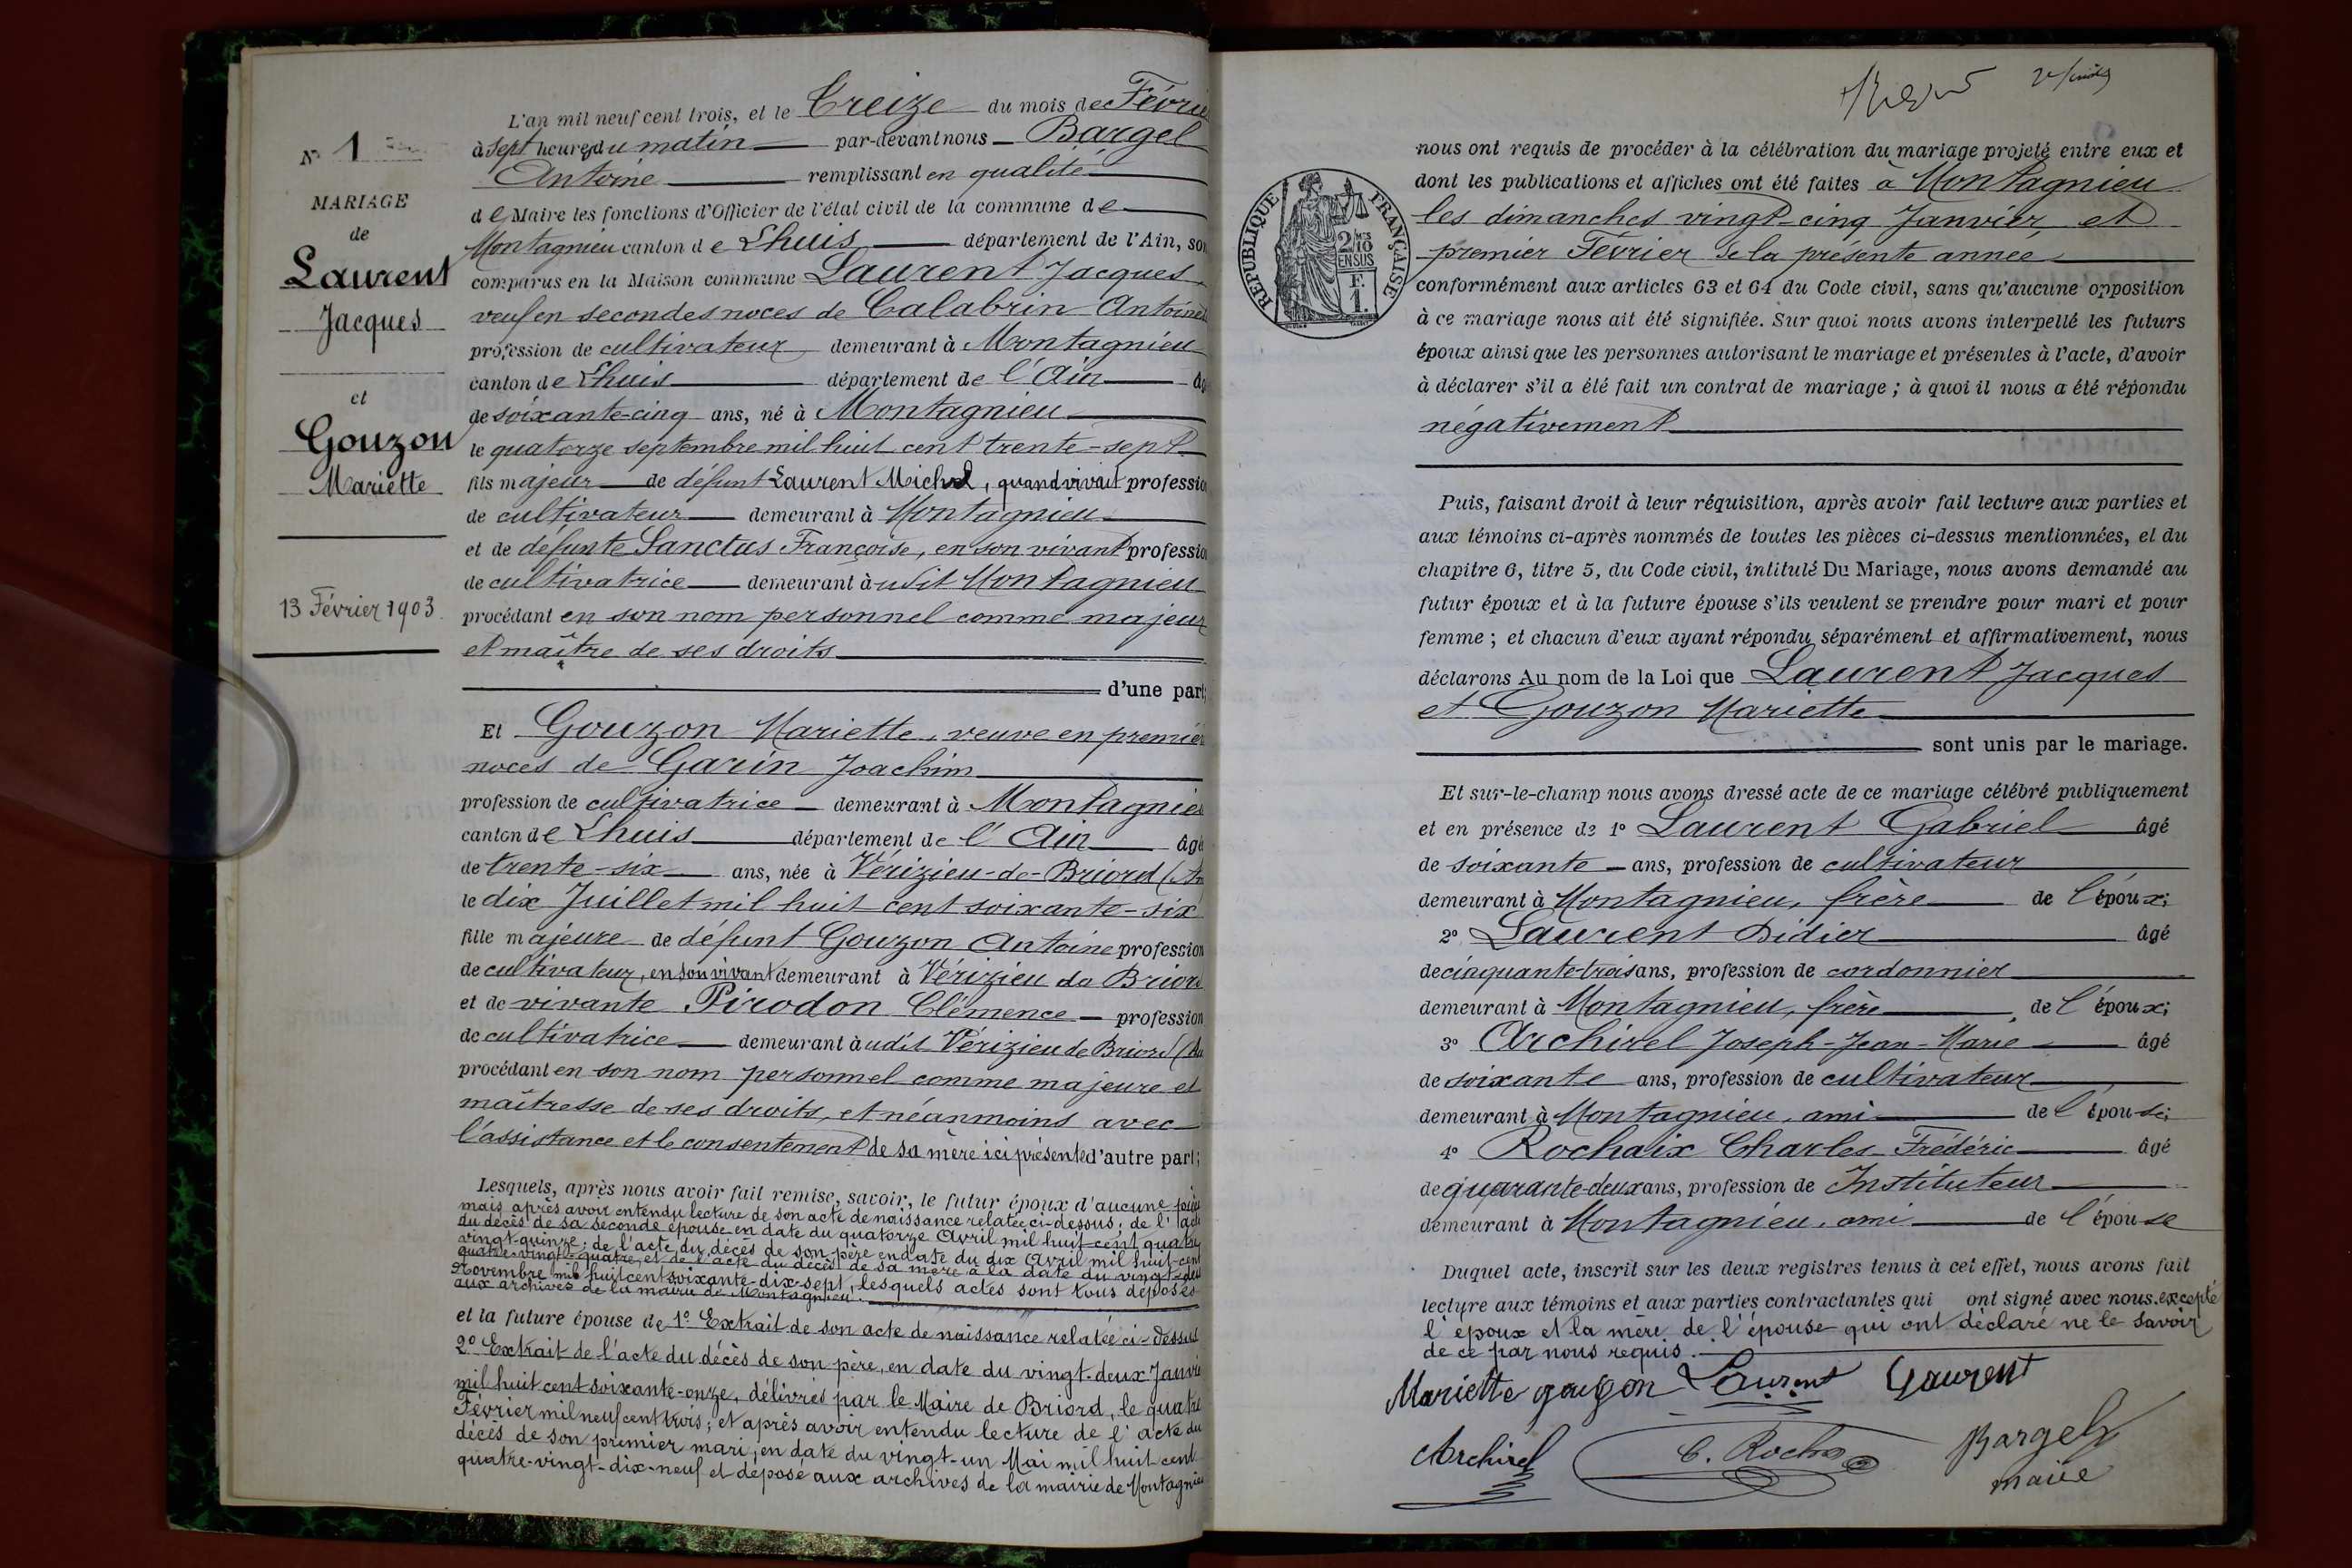 N° 1
MARIAGE
de
Laurent
Jacques
et
Gouzon
Mariette
13 Février 1903
L'an mil neuf cent trois, et le Treize du mois de Févrie
à sept heures du matin par-devant nous Bargel
Antoine remplissant en qualité
de Maire les fonctions d'Officier de l'état civil de la commune de
Montagnieu canton de Lhuis département de l'Ain, son
comparus en la Maison commune Laurent Jacques
veuf en secondes noces de Calabrin Antoinet
profession de cultivateur demeurant à Montagnieu
canton de Lhuis département de l'Ain âg
de soixante-cinq ans, né à Montagnieu
le quatorze septembre mil huit cent trente-sept
fils majeur de défunt Laurent Michel, quand vivait professio
de cultivateur demeurant à Montagnieu
et de défunte Sanctus Françoise, en son vivant professio
de cultivatrice demeurant à udit Montagnieu
procédant en son nom personnel comme majeur
et maître de ses droits
d'une part;
Et Gouzon Mariette, veuve en premiè
noces de Garin Joachim
profession de cultivatrice demeurant à Montagnieu
canton de Lhuis département de l'Ain âgé
de trente-six ans, née à Vérizieu-de-Briord (A
le dix Juillet mil huit cent soixante-six
fille majeure de défunt Gouzon Antoine profession
de cultivateur, en son vivant demeurant à Vérizieu de Briord
et de vivante Pirodon Clémence profession
de cultivatrice demeurant à udit Vérizieu de Briord (A
procédant en son nom personnel comme majeure et
maîtresse de ses droits, et néanmoins avec
l'assistance et le consentement de sa mère ici présente d'autre part;
Lesquels, après nous avoir fait remise, savoir, le futur époux d'aucune pièce
mais après avoir entendu lecture de son acte de naissance relatée ci-dessus; de l'acte
du décès de sa seconde épouse en date du quatorze Avril mil huit cent quatre
vingt-quinze; de l'acte du décès de son père en date du dix Avril mil huit-cent
quatre-vingt-quatre, et de l'acte du décès de sa mère à la date du vingt-deux
Novembre mil huit cent soixante-dix-sept, lesquels actes sont tous déposés
aux archives de la mairie de Montagnieu.
et la future épouse de 1° Extrait de son acte de naissance relatée ci-dessus
2° Extrait de l'acte du décès de son père, en date du vingt-deux Janvie
mil huit cent soixante-onze, délivrés par le Maire de Briord, le quatre
Février mil neuf cent trois; et après avoir entendu lecture de l'acte du
décès de son premier mari, en date du vingt-un Mai mil huit cent
quatre-vingt-dix-neuf et déposé aux archives de la mairie de Montagnieu
RÉPUBLIQUE FRANÇAISE
2/10
EN SUS
F.
1.
nous ont requis de procéder à la célébration du mariage projeté entre eux et
dont les publications et affiches ont été faites à Montagnieu
les dimanches vingt-cinq Janvier, et
premier Février de la présente année
conformément aux articles 63 et 64 du Code civil, sans qu'aucune opposition
à ce mariage nous ait été signifiée. Sur quoi nous avons interpellé les futurs
époux ainsi que les personnes autorisant le mariage et présentes à l'acte, d'avoir
à déclarer s'il a été fait un contrat de mariage; à quoi il nous a été répondu
négativement
Puis, faisant droit à leur réquisition, après avoir fait lecture aux parties et
aux témoins ci-après nommés de toutes les pièces ci-dessus mentionnées, et du
chapitre 6, titre 5, du Code civil, intitulé Du Mariage, nous avons demandé au
futur époux et à la future épouse s'ils veulent se prendre pour mari et pour
femme; et chacun d'eux ayant répondu séparément et affirmativement, nous
déclarons Au nom de la Loi que Laurent Jacques
et Gouzon Mariette
sont unis par le mariage.
Et sur-le-champ nous avons dressé acte de ce mariage célébré publiquement
et en présence de 1° Laurent Gabriel âgé
de soixante ans, profession de cultivateur
demeurant à Montagnieu, frère de l'époux;
2° Laurent Didier âgé
de cinquante-trois ans, profession de cordonnier
demeurant à Montagnieu, frère de l'époux;
3° Archirel Joseph-Jean-Marie âgé
de soixante ans, profession de cultivateur
demeurant à Montagnieu, ami de l'épouse;
4° Rochaix Charles Frédéric âgé
de quarante-deux ans, profession de Instituteur
demeurant à Montagnieu, ami de l'épouse
Duquel acte, inscrit sur les deux registres tenus à cet effet, nous avons fait
lecture aux témoins et aux parties contractantes qui ont signé avec nous. excepté
l'époux et la mère de l'épouse qui ont déclaré ne le savoir
de ce par nous requis.
Mariette gouzon Laurent Laurent
Archirel C. Rochaix Bargel
maire